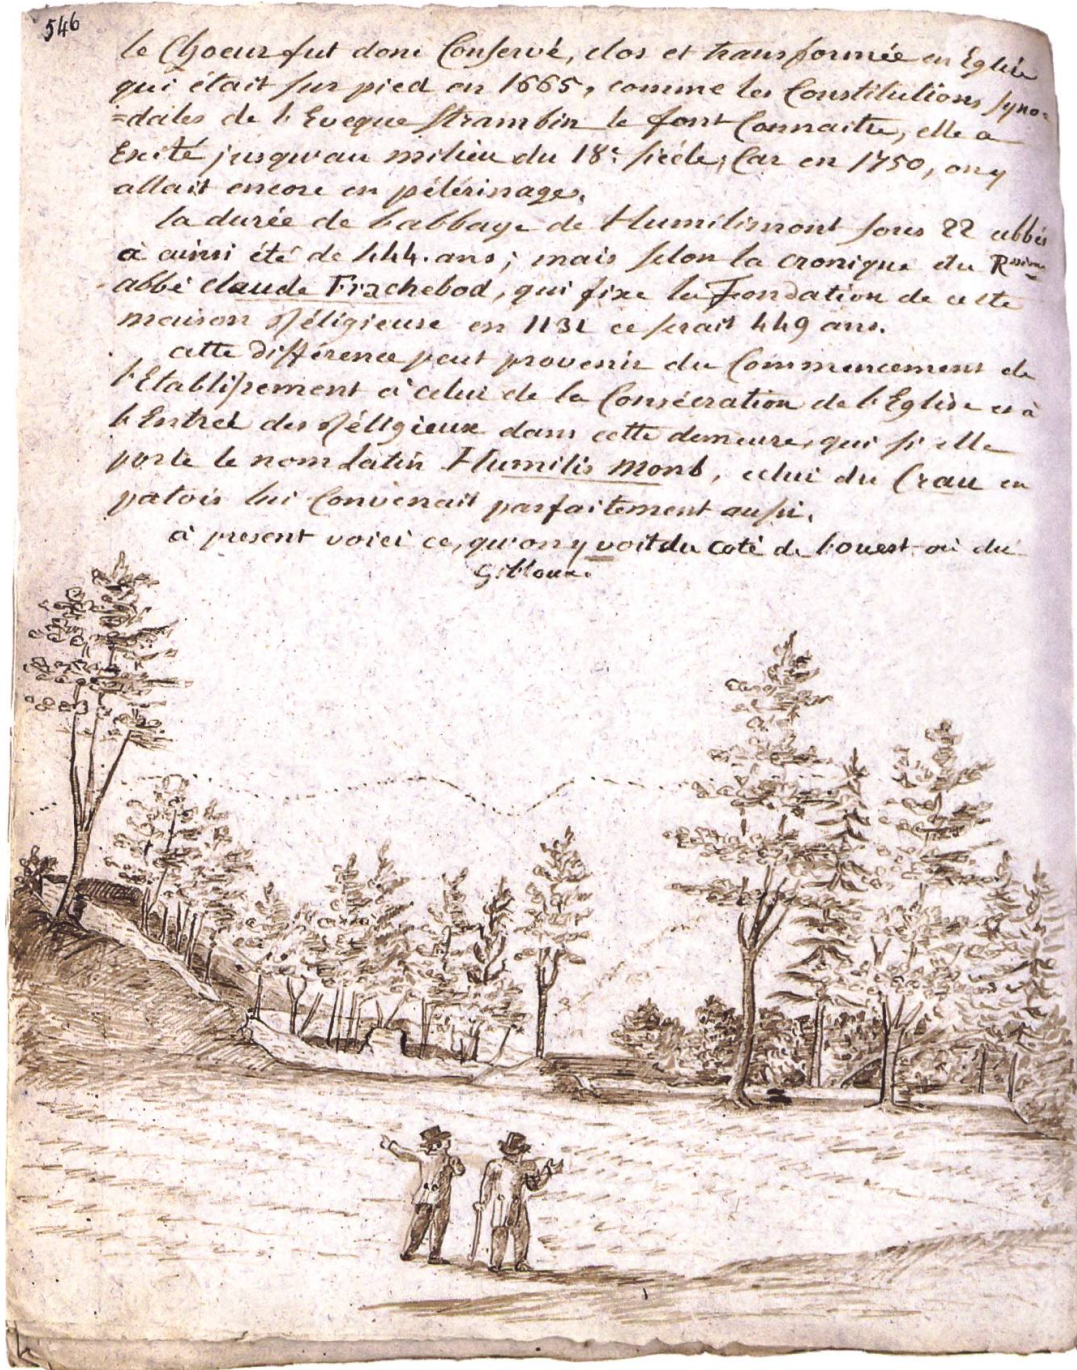 546
le Choeur fut donc Conservé, clos et transformée en Eglise
qui était sur pied en 1665, comme les Constitutions Syno=
=dales de l'Eveque Strambin le font Connaitre, elle a
Exité jusqu'au milieu du 18e siécle; Car en 1750, on y
allait encore en pélérinage.
la durée de l'abbaye de Humilimont sous 22 abbés
à ainsi été de 444. ans; mais selon la cronique du Rssime
abbé claude Frachebod, qui fixe la Fondation de cette
maison Réligieuse en 1131 ce serait 449 ans.
cette différence peut provenir du Commencement de
l'Etablissement à celui de la Consécration de l'Eglise et à
l'Entrée des Réligieux dans cette demeure, qui si elle
porte le nom latin Humilis Mons, celui du Crau en
patois lui Convenait parfaitement aussi.
à present voici ce, qu'on y voit du coté de l'ouest où du
Gibloux.